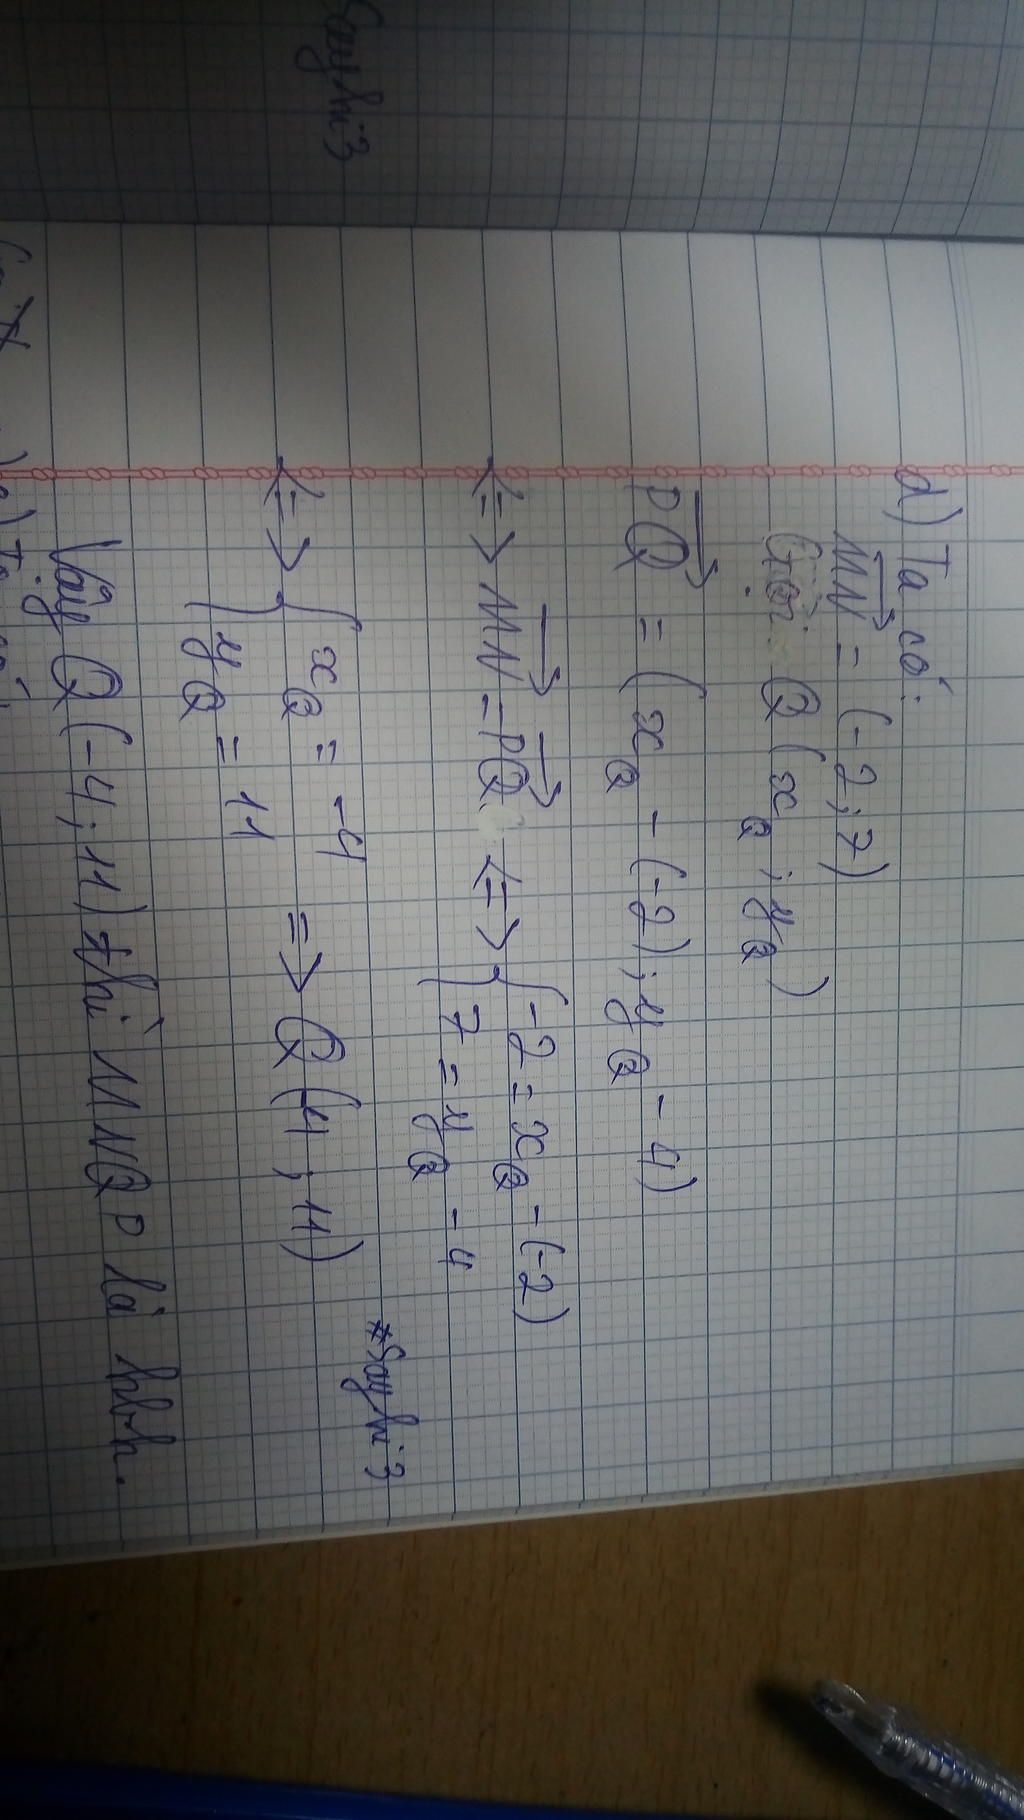 Sayhi3
d) Ta có:
MN = (-2; 7)
Gọi: Q (xQ; yQ)
PQ = (xQ - (-2); yQ - 4)
<=> MN = PQ <=> { -2 = xQ - (-2)
7 = yQ - 4
<=> { xQ = -4
yQ = 11 => Q (4; 11)
#Sayhi3
Vậy Q (-4; 11) thì MNQP là hbh.
e) Ta có